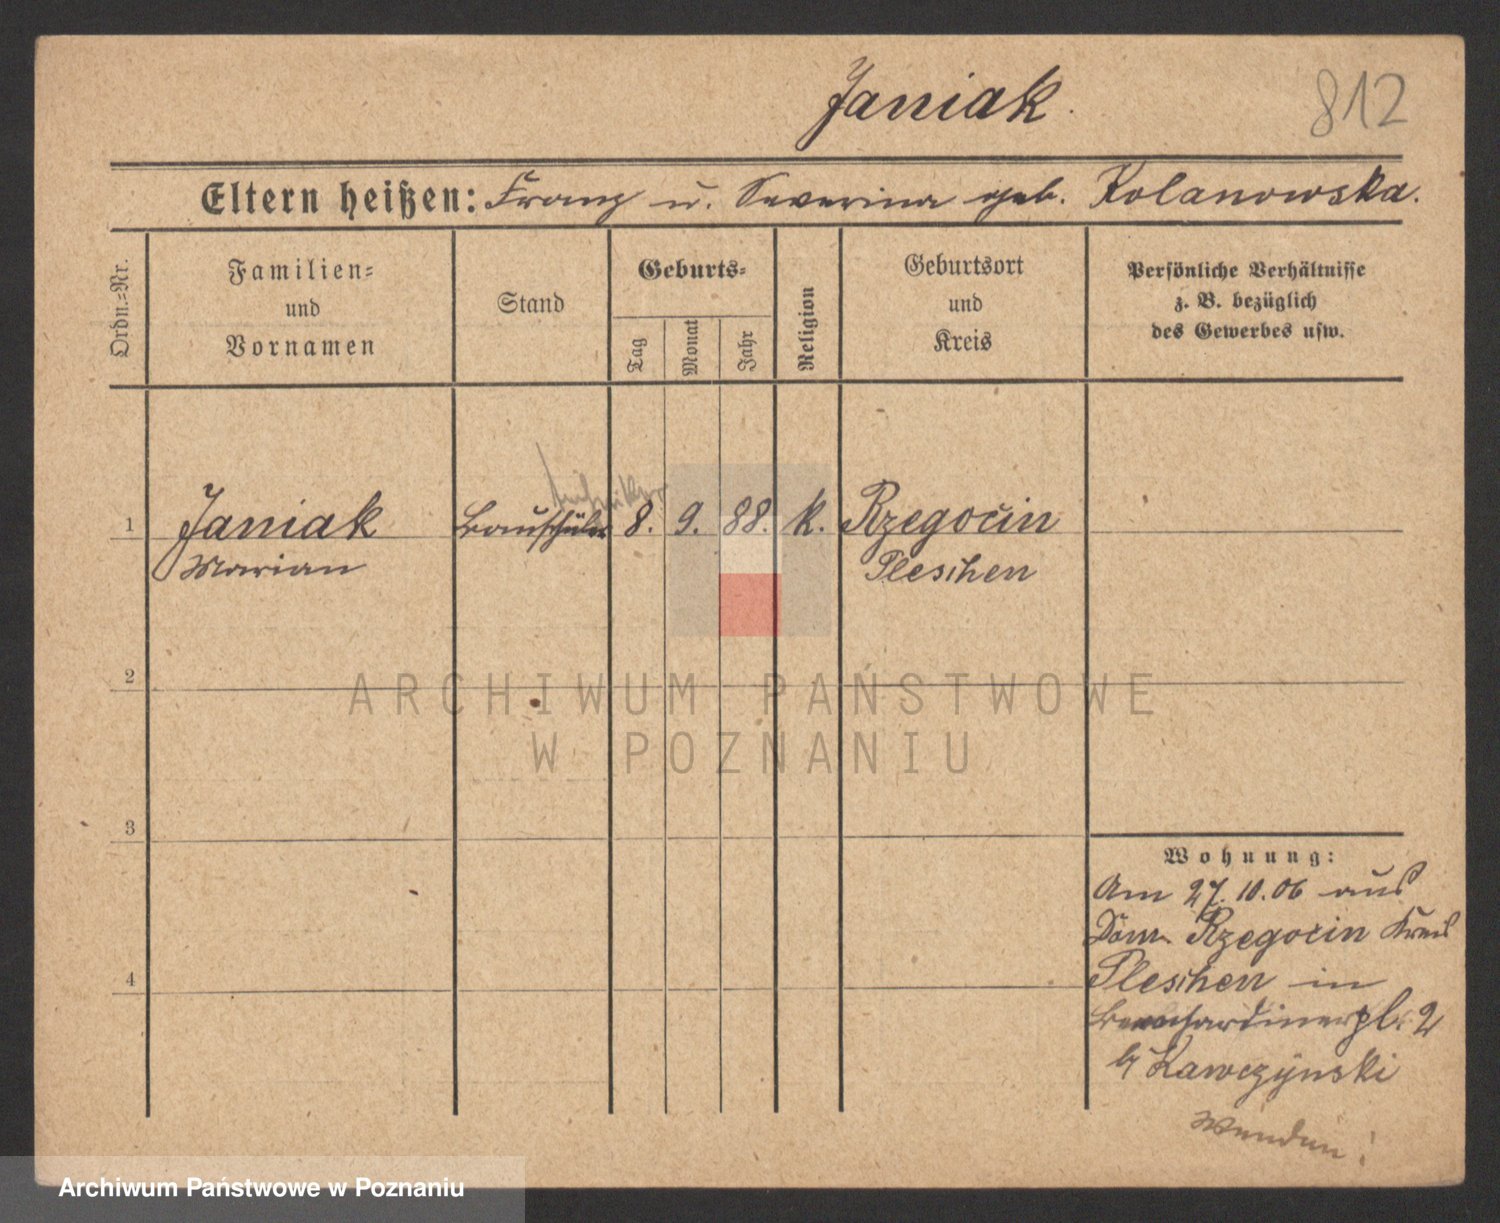 Janiak.
812
Eltern heißen: Franz u. Severina geb. Kolanowska.
Ordn.-Nr.
Familien-
und
Vornamen
Stand
Geburts-
Tag
Monat
Jahr
Religion
Geburtsort
und
Kreis
Persönliche Verhältnisse
z. B. bezüglich
des Gewerbes usw.
techniker
1 Janiak Bauschüler 8. 9. 88. k. Rzegocin
Marian Pleschen
2
ARCHIWUM PAŃSTWOWE
W POZNANIU
3
Wohnung:
Am 27.10.06 aus
Dom. Rzegocin Kreis
4 Pleschen in
Bernhardinerpl. 2
b/ Kawczynski
Wenden!
Archiwum Państwowe w Poznaniu